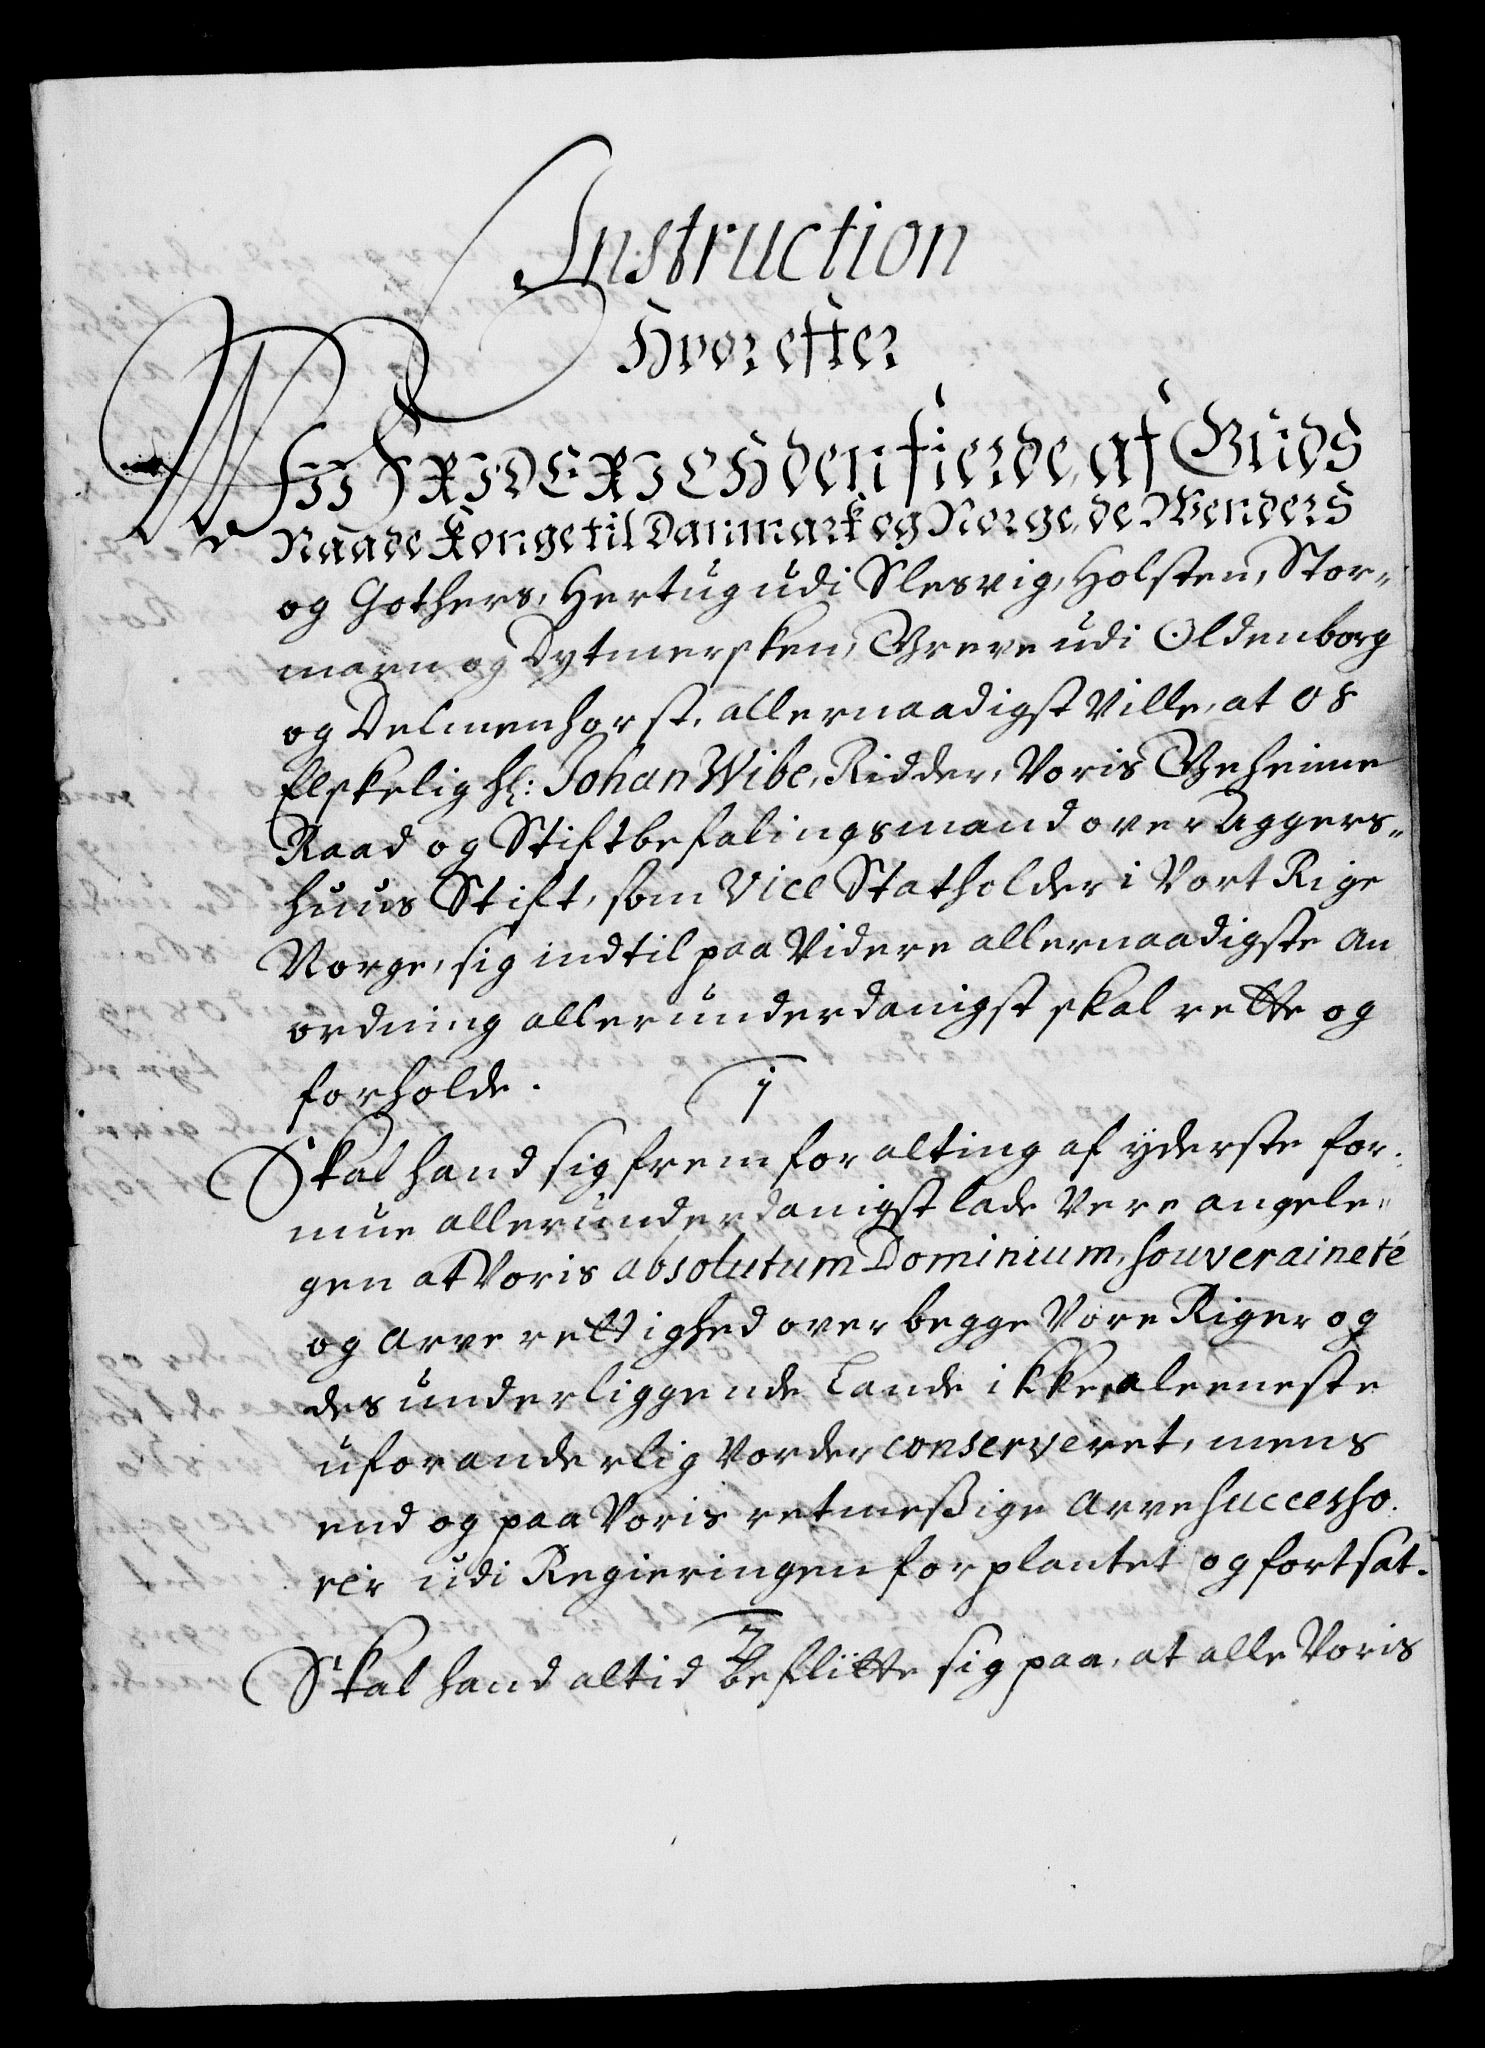 Instruction
Hvorefter
WII FRIDERICH den fierde, af Guds
Naade Konge til Danmark og Norge, de Wenders
og Gothers, Hertug udi Slesvig, Holsten, Stor-
marn og Dytmersken, Greve udi Oldenborg
og Delmenhorst, allernaadigst Ville, at os
Elskelig hl: Johan Wibe, Ridder, Voris Geheime
Raad og Stiftbefalingsmand over Aggers-
huus Stift, som Vice Statholder i Vort Rige
Norge, sig indtil paa Videre allernaadigste an
ordning allerunderdanigst skal rette og
forholde.
1
Skal hand sig frem for alting af yderste for-
mue allerunderdanigst lade Vere angele-
gen at Voris absolutum Dominium, souveraineté
og arve rettighed over begge Vore Riger og
des underliggende Lande ikke aleeneste
uforanderlig Vorder conserveret, mens
end og paa Voris retmeßige arve successo-
reir udi Regieringen forplantet og fortsat.
2
Skal hand altid beflitte sig paa, at alle Voris